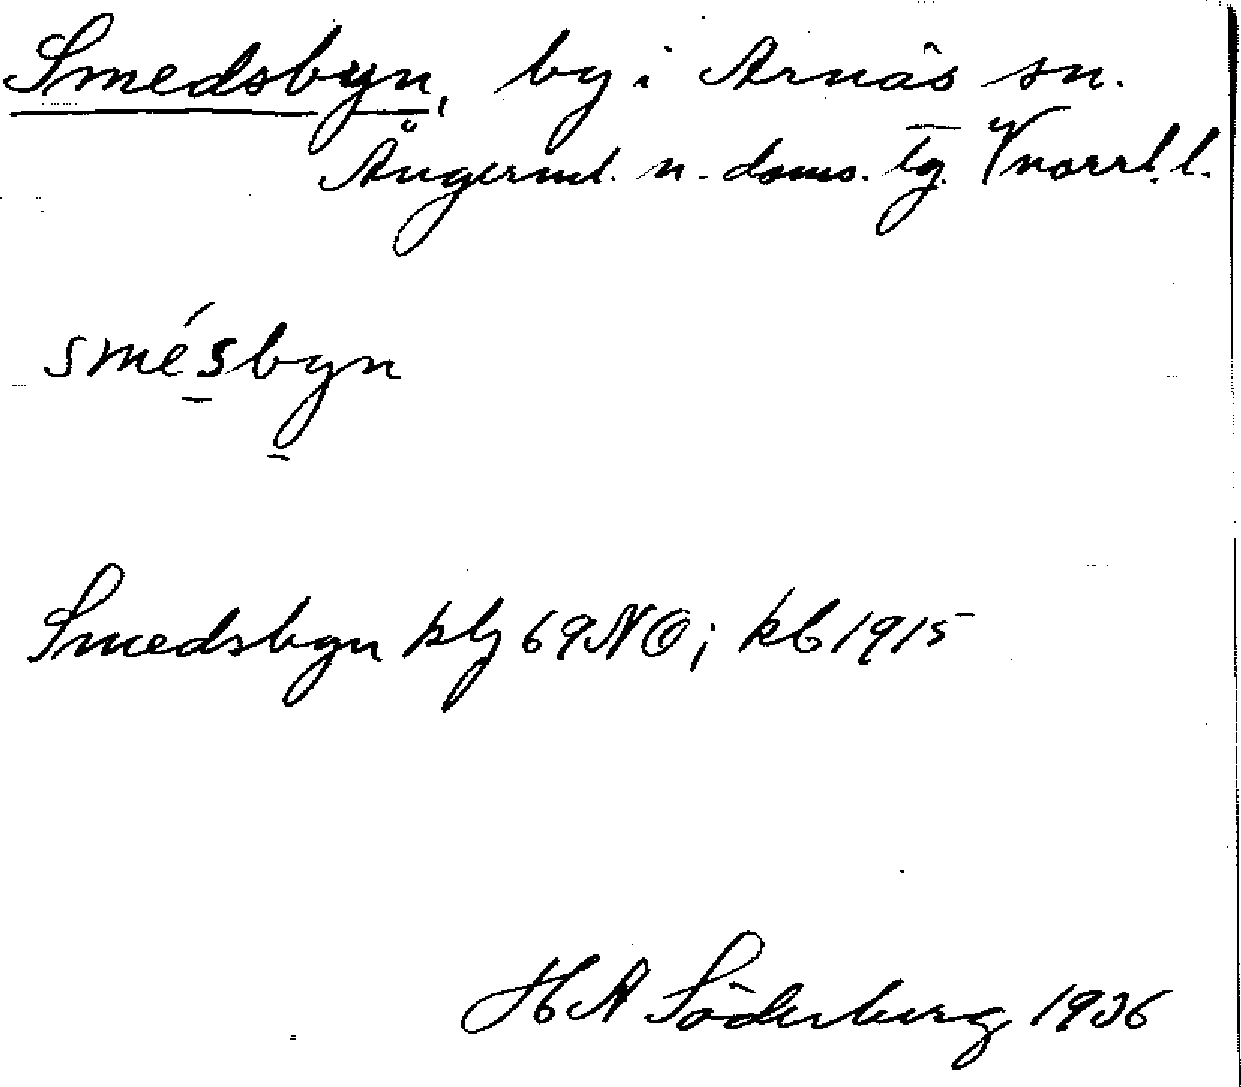 Smedsbyn, by i Arnäs sn.
Ångerml. n. doms. tg. Vnorrl. l.
smésbyn
Smedsbyn kbj 69 NO; kb 1915
H A Söderberg 1936